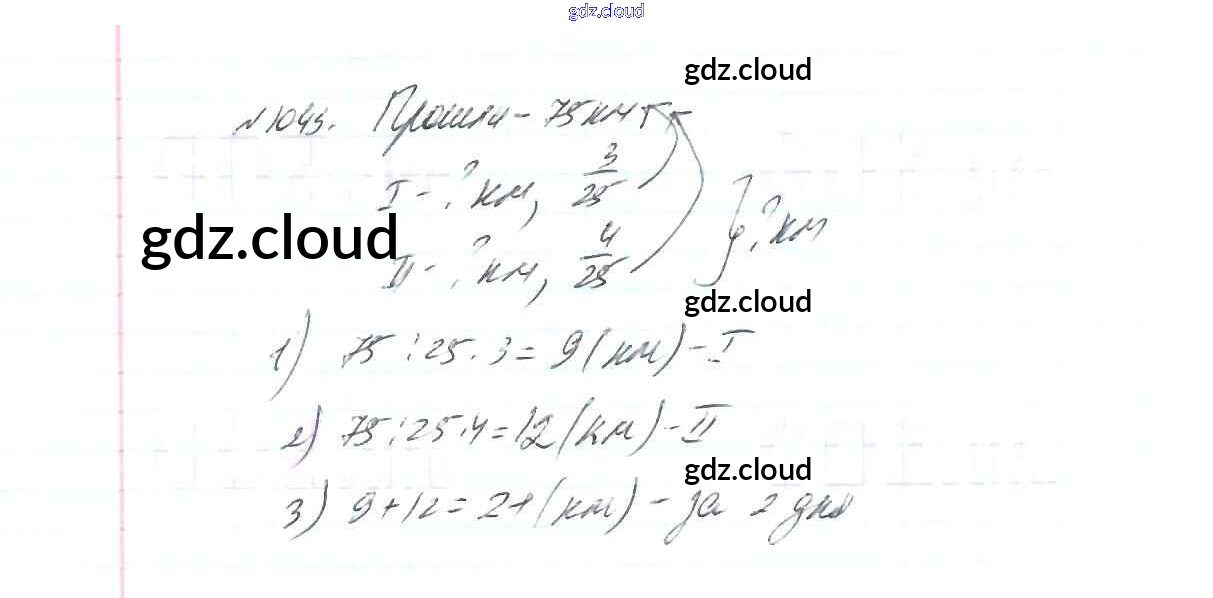 gdz.cloud
gdz.cloud
№1045. Прошли - 75 км
I - ? км, 3/25
gdz.cloud
} ? км
II - ? км, 4/25
gdz.cloud
1) 75 : 25 · 3 = 9 (км) - I
2) 75 : 25 · 4 = 12 (км) - II
gdz.cloud
3) 9 + 12 = 21 (км) - за 2 дня